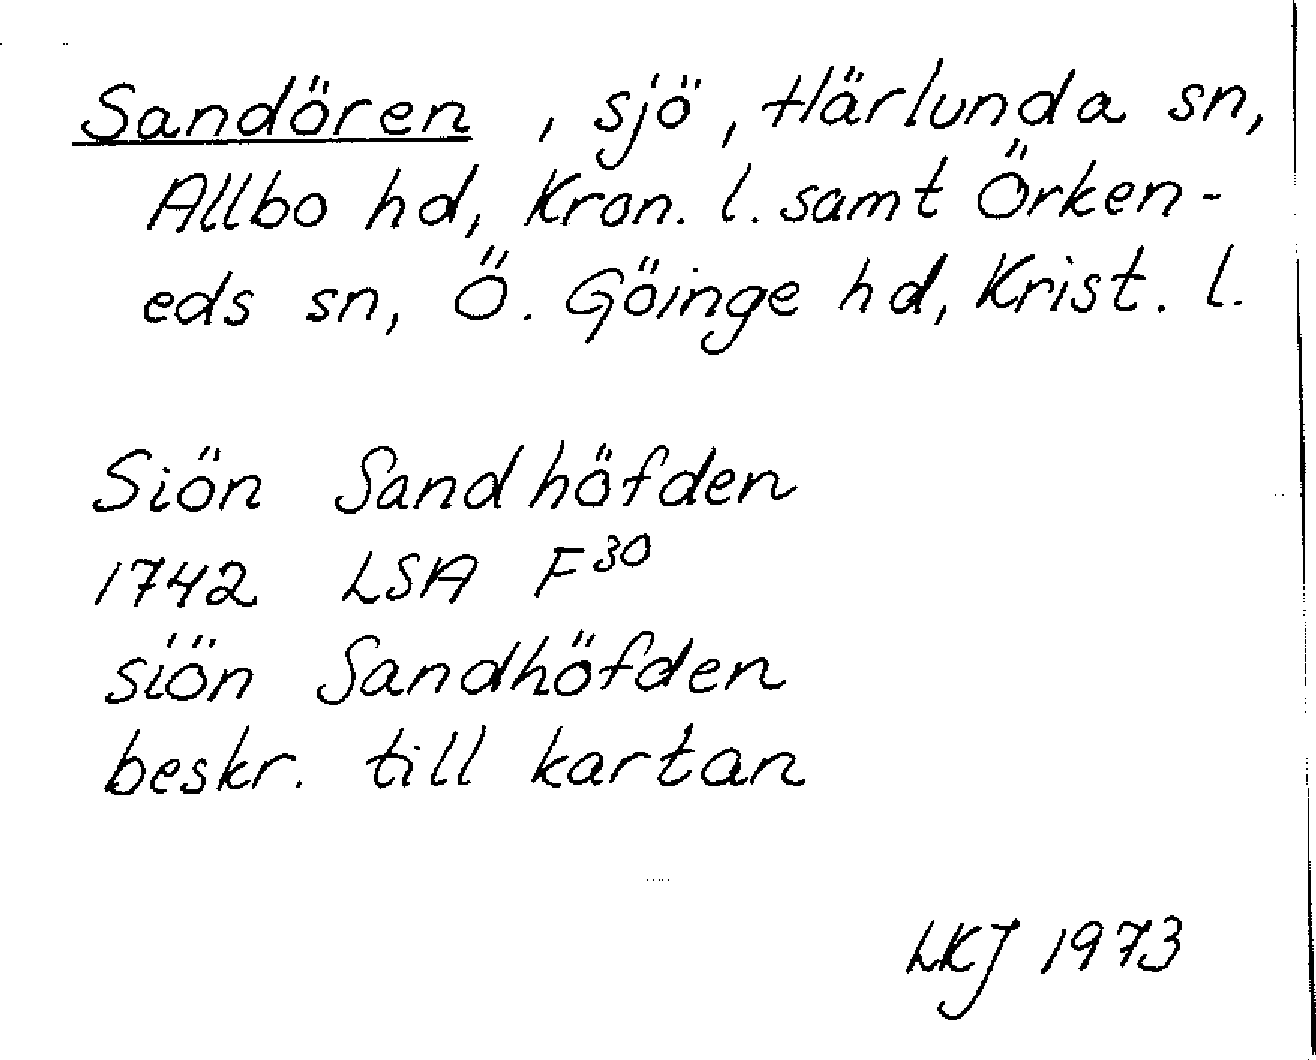 Sandören, sjö, Härlunda sn,
Allbo hd, Kron. l. samt Örken-
eds sn, Ö. Göinge hd, Krist. l.
Siön Sandhöfden
1742 LSA F30
siön Sandhöfden
beskr. till kartan
LKJ 1973